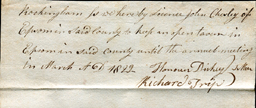 Rockingham ss we hereby Licence John Chesley of
Epsom in said county to keep an open tavern in
Epsom in said county until the annual meeting
in March AD 1822
Richard